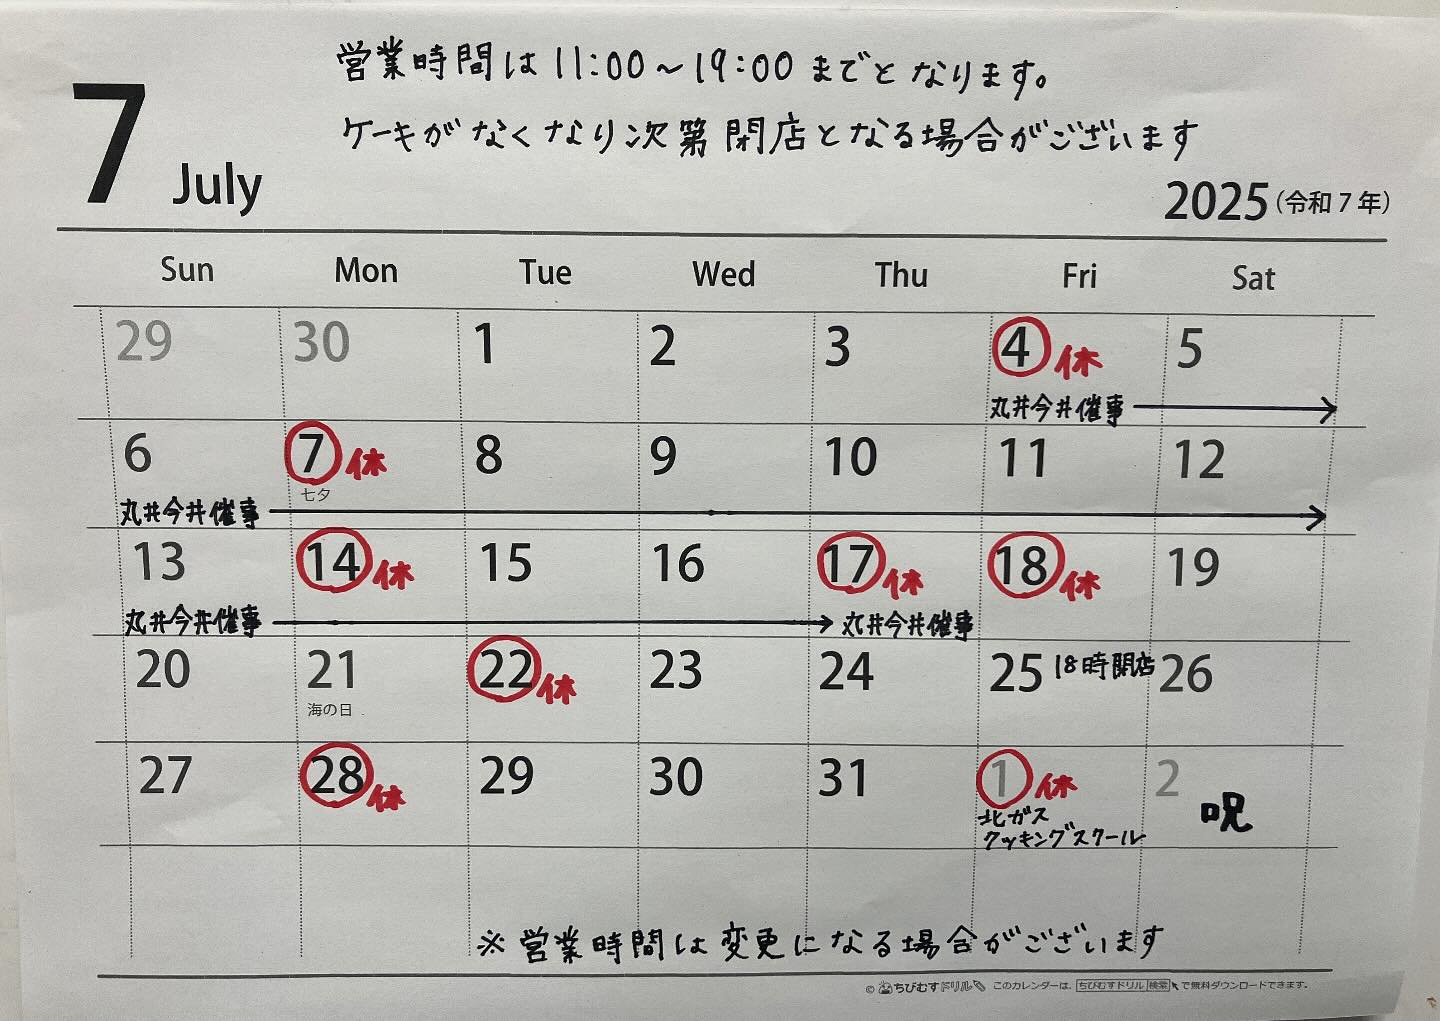 営業時間は11:00～19:00までとなります。
ケーキがなくなり次第閉店となる場合がございます
7 July
2025(令和7年)
Sun Mon Tue Wed Thu Fri Sat
29 30 1 2 3 4休 5
丸井今井催事
6 7休 8 9 10 11 12
七夕
丸井今井催事
13 14休 15 16 17休 18休 19
丸井今井催事 丸井今井催事
20 21 22休 23 24 25 18時閉店 26
海の日
27 28休 29 30 31 1休 2
北ガス
クッキングスクール
呪
※営業時間は変更になる場合がございます
© ちびむすドリル このカレンダーは、ちびむすドリル 検索 で無料ダウンロードできます。